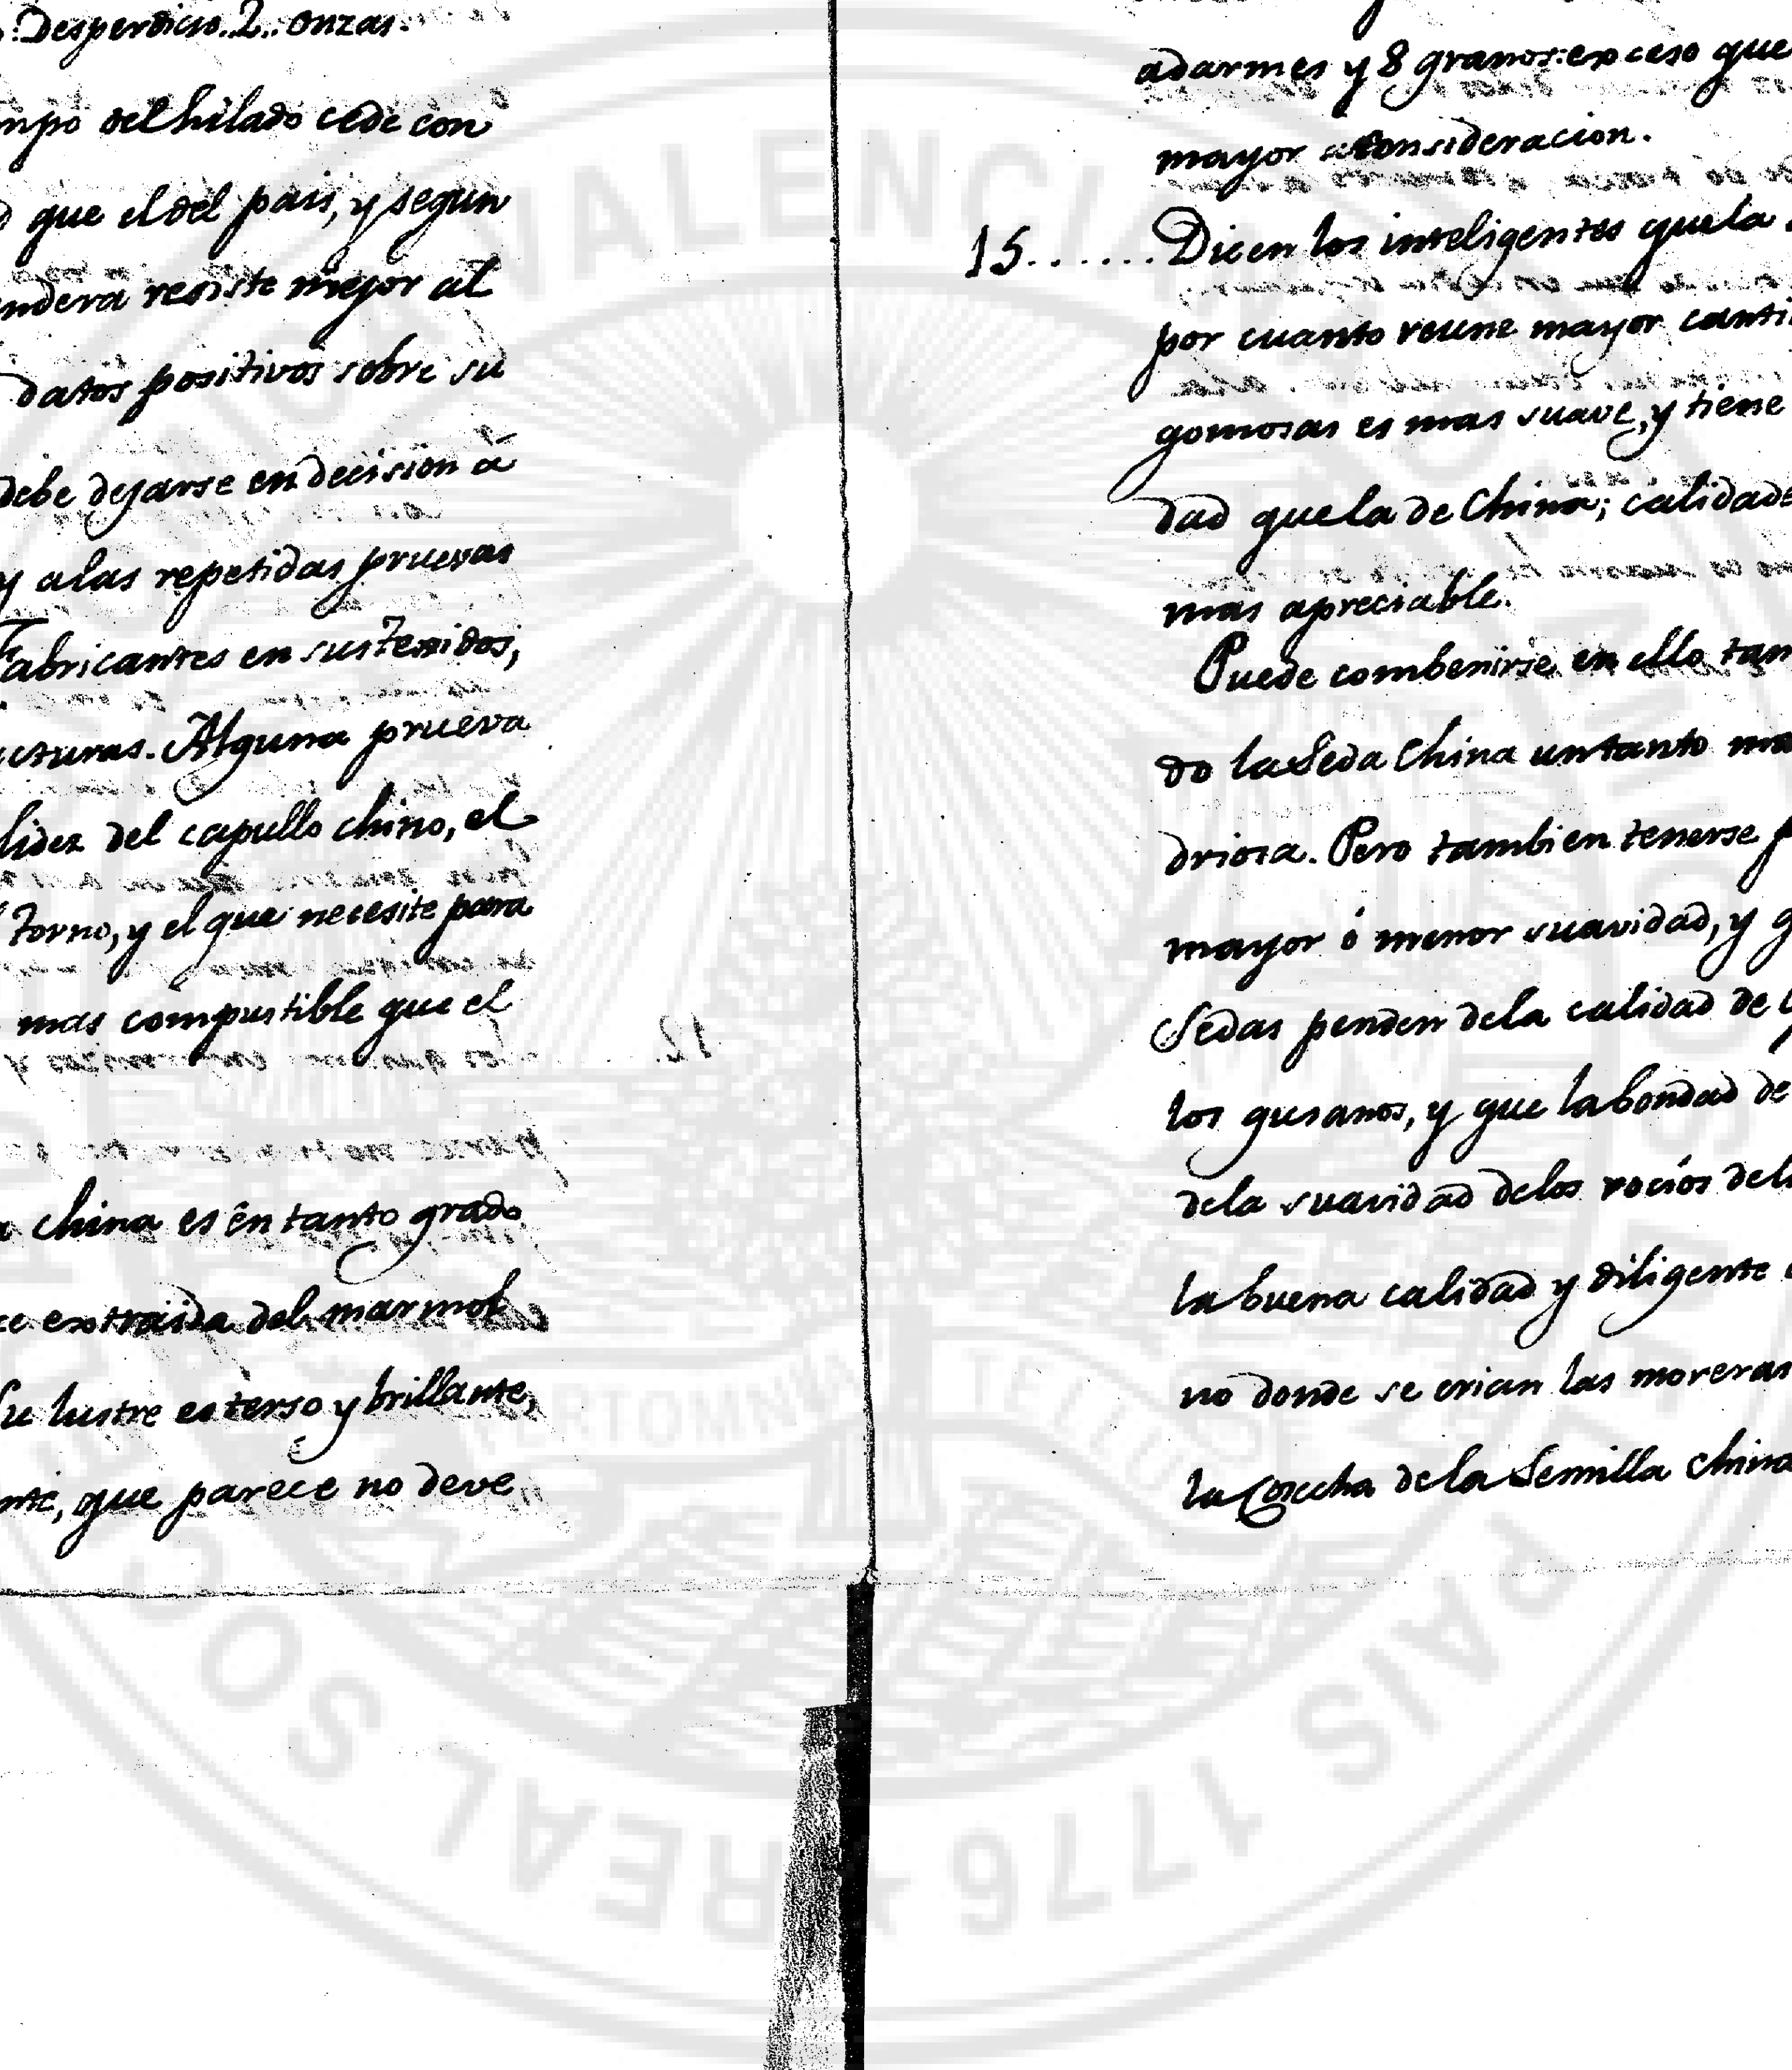 Desperdicio..2.. onzas.
del hilado cede con
que el del pais, y segun
resiste mejor al
datos positivos sobre su
debe dejarse en decision á
y alas repetidas pruevas
Fabricantes en sus Texidos,
Alguna prueva
del capullo chino, el
Torno, y el que necesite para
mas compustible que el
china es en tanto grado
extraida del marmol
Su lustre es terso y brillante,
que parece no deve
adarmes y 8 granos: exceso que
mayor consideracion.
15.......Dicen los inteligentes que la
por cuanto reune mayor
gomosas es mas suave, y tiene
dad que la de China;
mas apreciable.
Puede combenirse en ello
do la Seda China un tanto
driosa. Pero tambien tenerse
mayor ó menor suavidad, y
Sedas penden dela calidad de
los gusanos, y que la bondad de
dela suavidad delos rocíos
la buena calidad y diligente
no donde se crian las moreras
la Cosecha dela Semilla china
12.
VALENCIA
1776 * REAL SO
PAIS